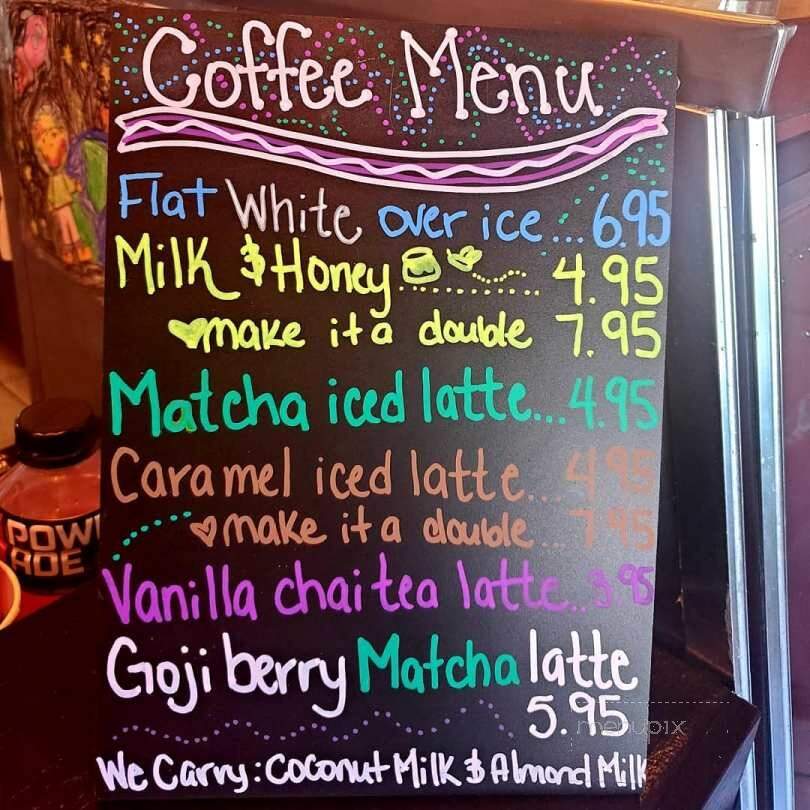 Coffee Menu
Flat White over ice... 6.95
Milk & Honey.............. 4.95
make it a double 7.95
Matcha iced latte...4.95
Caramel iced latte...4.95
make it a double...7.95
Vanilla chai tea latte...3.95
Goji berry Matcha latte
5.95
We Carry: Coconut Milk & Almond Milk
POWE
ADE
menupix